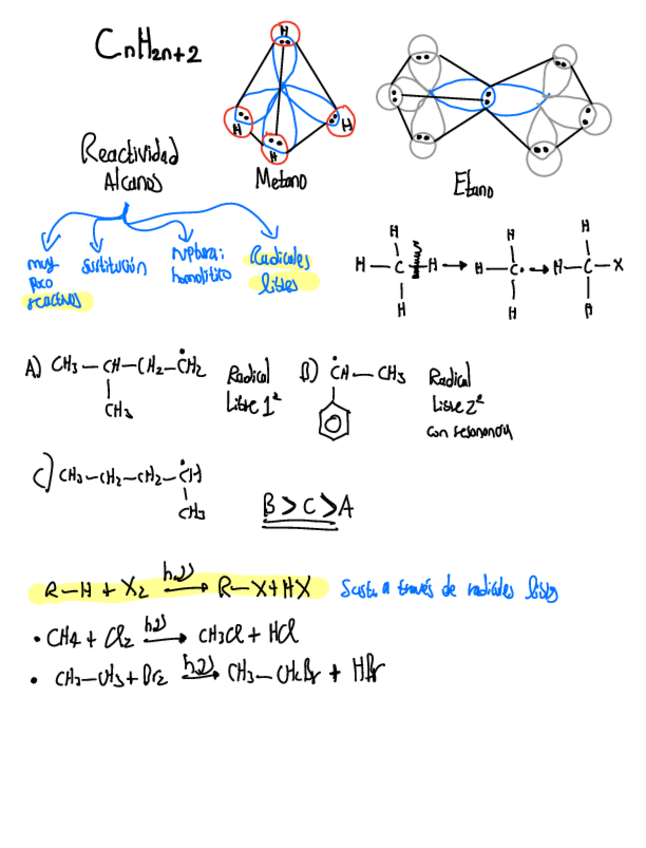 CnH2n+2
H
H
H
H
Metano
Etano
Reactividad
Alcanos
muy
poco
reactivos
Sustitución
ruptura:
homolítico
Radicales
libres
H
H—C—H
H
H
H—C•
H
H
H—C—X
H
A) CH3—CH—CH2—ĊH2
CH3
Radical
Libre 1º
B) ĊH—CH3
Radical
Libre 2º
con resonancia
C) CH3—CH2—CH2—ĊH
CH3
B>C>A
R—H + X2 hν → R—X+HX
Sust. a través de radicales libres
• CH4 + Cl2 hν → CH3Cl + HCl
• CH3—CH3 + Br2 hν → CH3—CH2Br + HBr